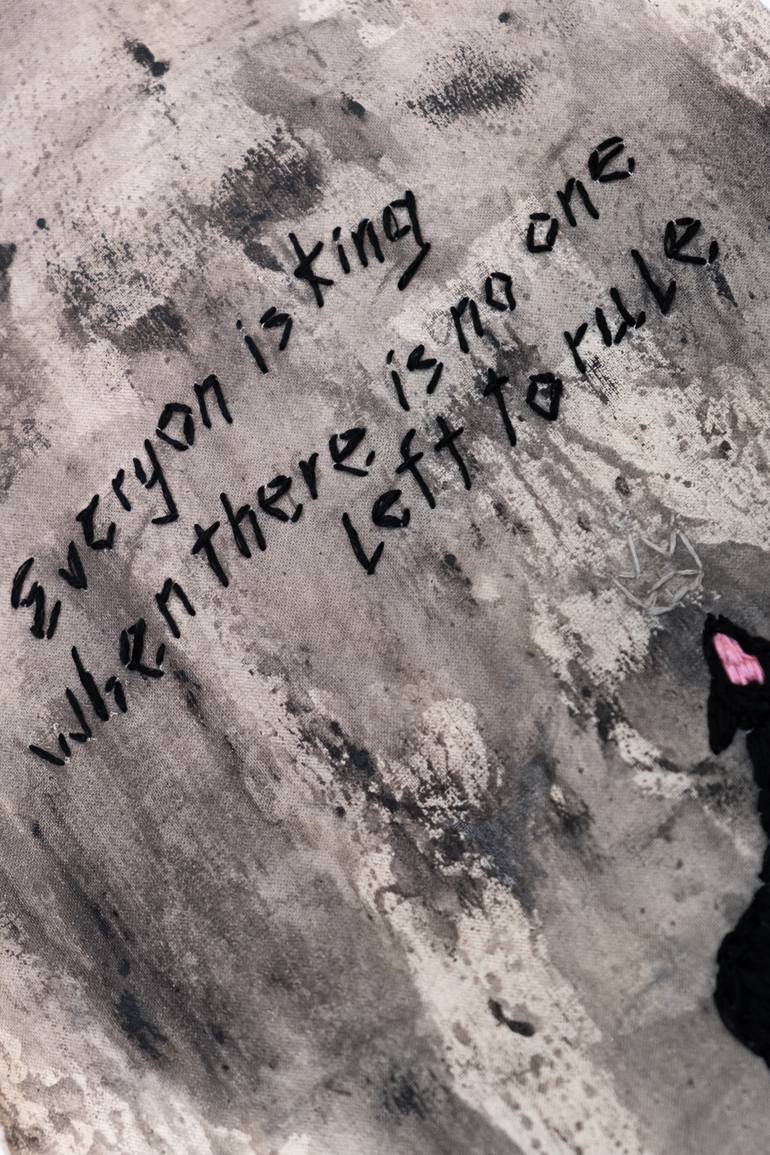 Everyon is king
when there is no one
left to rule.